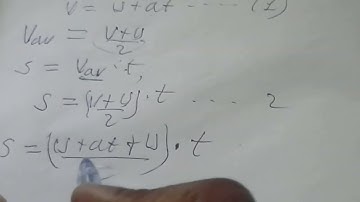 v = u + at ..... (1)
Vav = v+u/2
s = Vav · t,
s = (v+u/2) · t ..... 2
s = (u + at + u) · t